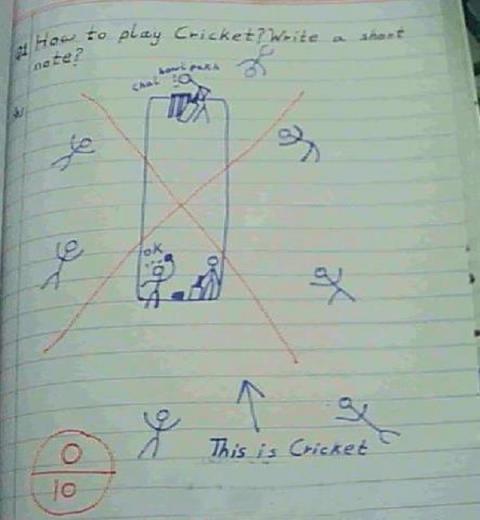 Q1 How to play Cricket? Write a short
note?
chal bowl pakh
OK
This is Cricket
0
10